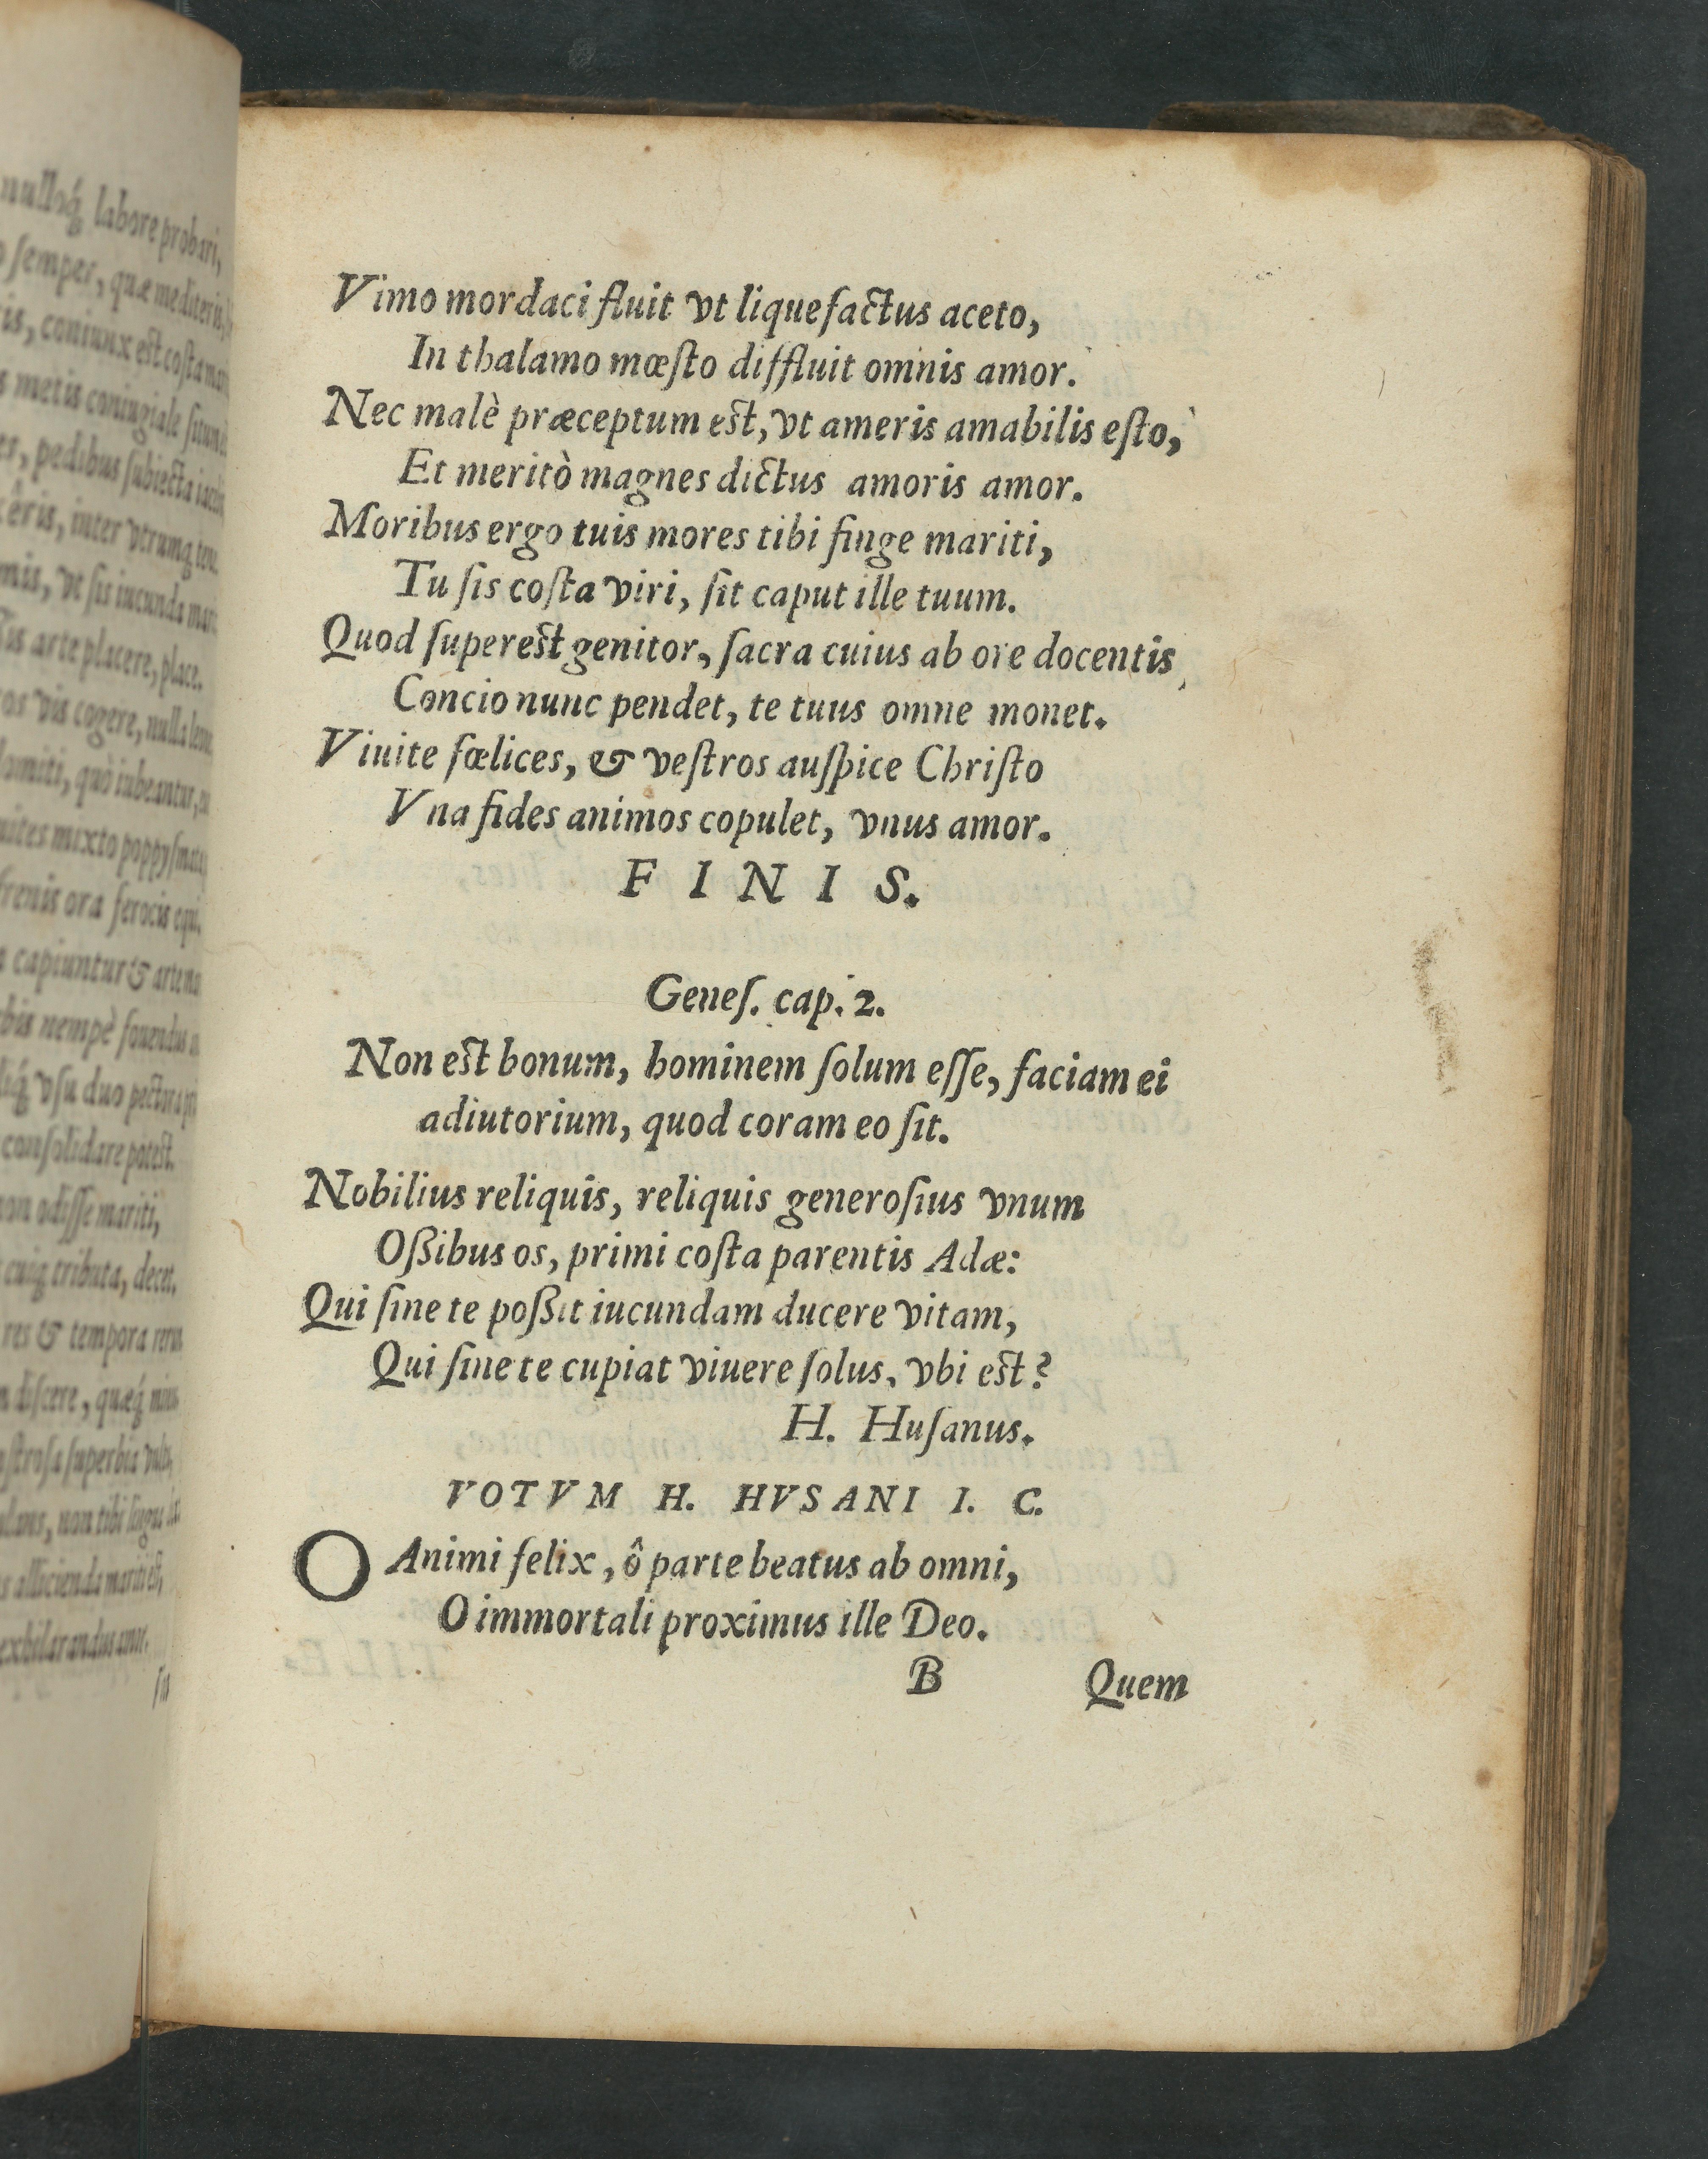 nulloq́ labore probari,
semper, quæ mediteris,
is, coniunx est costa
metis coniugiale
es, pedibus subiecta
eris, inter vtrumq́
vt sis iucunda
arte placere, place.
os vis cogere, nulla
domiti, quò iubeantur,
mixto poppysmata
frenis ora ferocis equi.
capiuntur & arte
nempè fouendus
vsu duo pectora
consolidare potest.
odisse mariti,
cuiq́ tributa, decet.
res & tempora
discere, quæq́
superbia
non tibi
allicienda mariti est,
exhilarandus
Vimo mordaci fluit vt liquefactus aceto,
In thalamo mœsto diffluit omnis amor.
Nec malè præceptum est, vt ameris amabilis esto,
Et meritò magnes dictus amoris amor.
Moribus ergo tuis mores tibi finge mariti,
Tu sis costa viri, sit caput ille tuum.
Quod superest genitor, sacra cuius ab ore docentis
Concio nunc pendet, te tuus omne monet.
Viuite fœlices, & vestros auspice Christo
Vna fides animos copulet, vnus amor.
F I N I S.
Genes. cap. 2.
Non est bonum, hominem solum esse, faciam ei
adiutorium, quod coram eo sit.
Nobilius reliquis, reliquis generosius vnum
Oßibus os, primi costa parentis Adæ:
Qui sine te poßit iucundam ducere vitam,
Qui sine te cupiat viuere solus, vbi est?
H. Husanus.
VOTVM H. HVSANI I. C.
O Animi felix, ô parte beatus ab omni,
O immortali proximus ille Deo.
B Quem